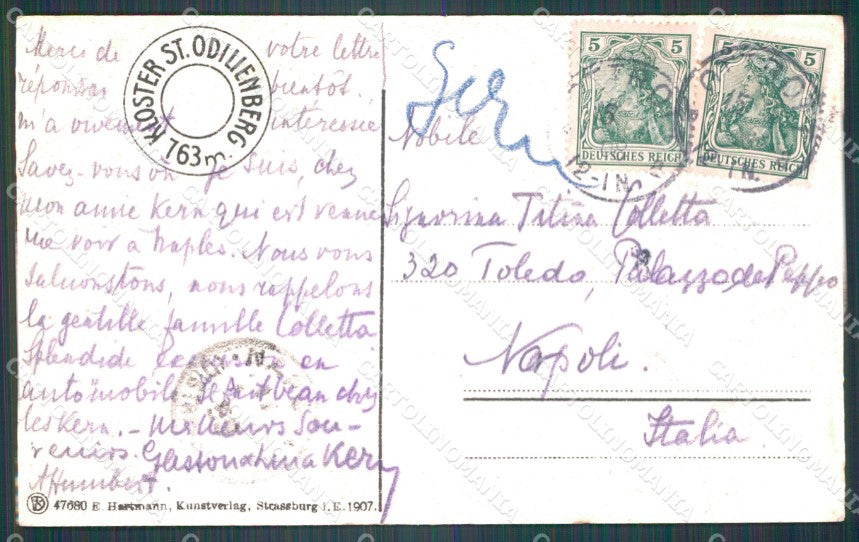 Merci de votre lettre
réponse bientôt.
m'a vivement intéressée
Savez-vous où je suis, chez
mon amie Kern qui est venue
me voir à Naples. Nous vous
nous rappelons
la gentille famille Colletta
Splendide Excursion en
automobile. chez
les Kern. - Meilleurs Sou-
venirs. Gaston Kern
AHumbert.
KLOSTER ST. ODILIENBERG
763 m.
47680 E. Hartmann, Kunstverlag, Strassburg i. E. 1907.
5
DEUTSCHES REICH
5
DEUTSCHES REICH
12-1N.
1N.
Nobile
Signorina Titina Colletta
320 Toledo, Palazzo de Peppo
Napoli.
Italia.
CARTOLINOMANIA